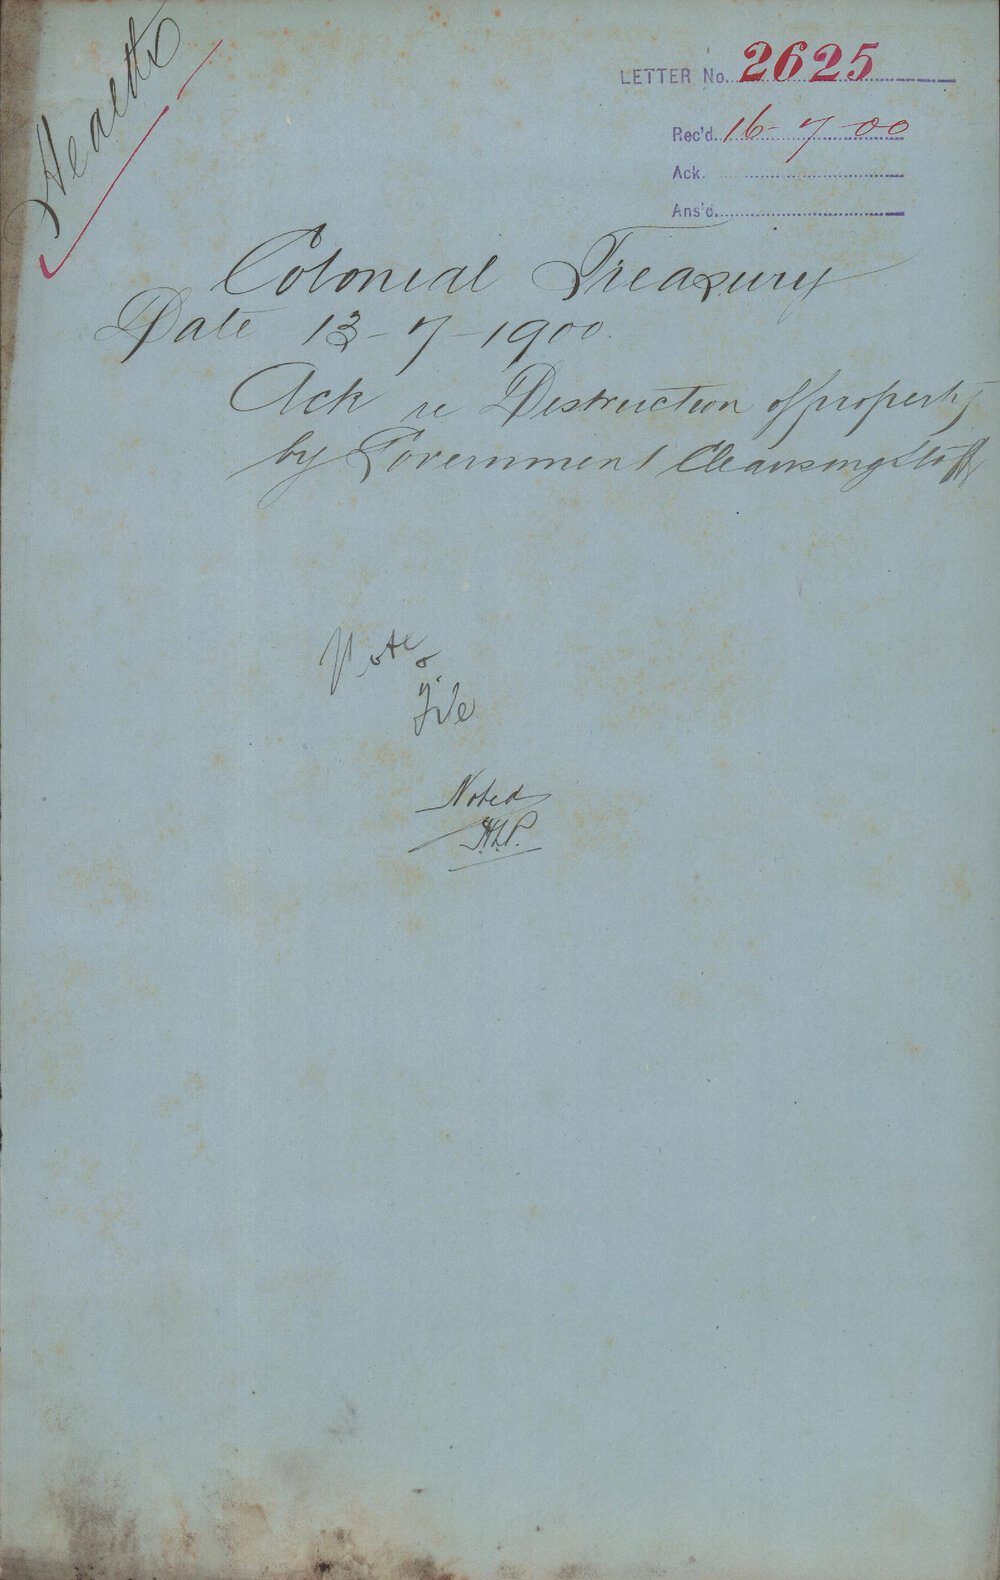 Health
LETTER No. 2625
Rec'd. 16-7-00
Ack.
Ans'd.
Colonial Treasury
Date 13-7-1900.
Ack re Destruction of property
by Government Cleansing Staff
Note &
File
Noted